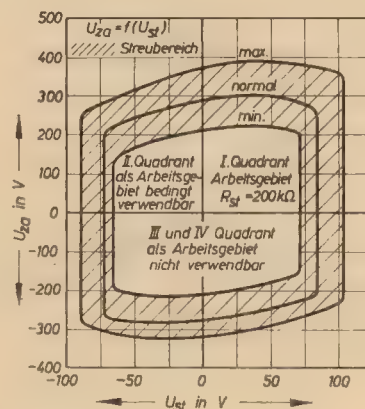 500
400
300
200
100
0
-100
-200
-300
-400
U_za in V
U_za = f(U_st)
Streubereich
max.
normal
min.
II. Quadrant
als Arbeitsge-
biet bedingt
verwendbar
I. Quadrant
Arbeitsgebiet
R_st = 200 kΩ
III und IV Quadrant
als Arbeitsgebiet
nicht verwendbar
-100
-50
0
50
100
U_st in V